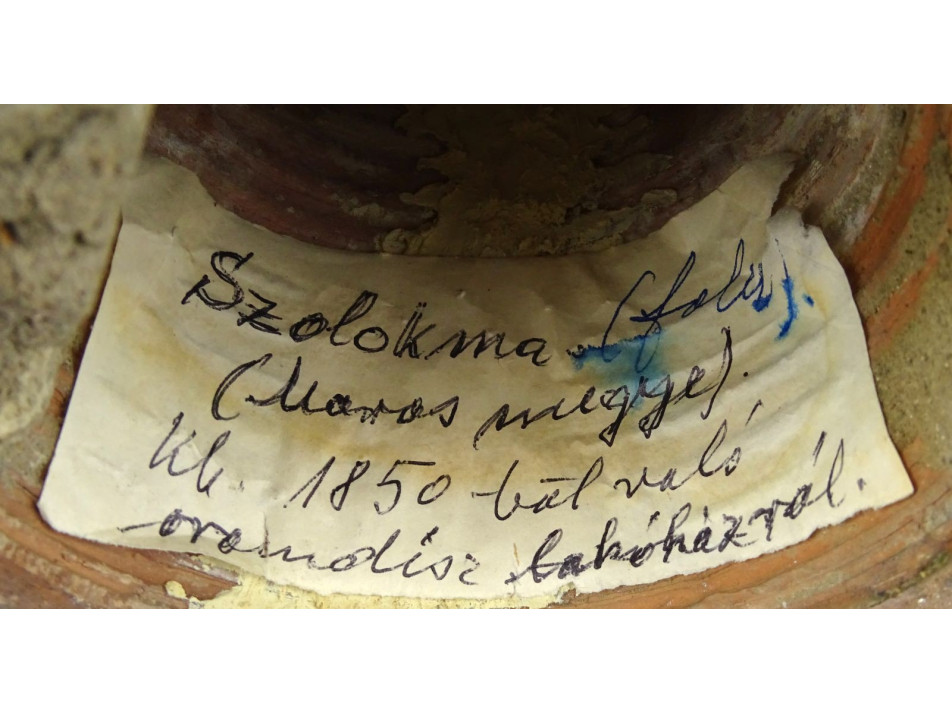 Szolokma (falu).
(Maros megye).
Kb. 1850-ből való
oromdísz lakóházról.